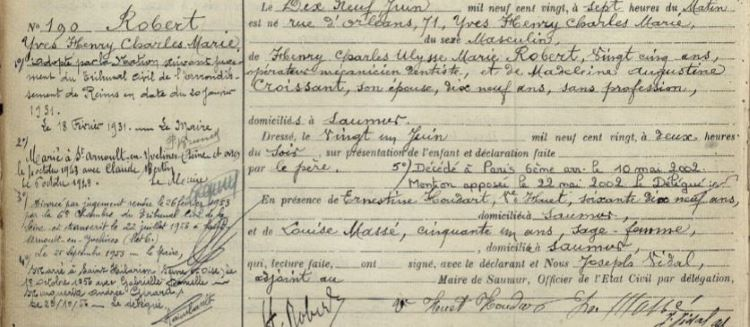 No 190 Robert
Yves Henry Charles Marie
1°) adopté par la Nation suivant juge-
ment du Tribunal civil de l'arrondis-
sement de Reims en date du 20 janvier
1931.
Le 18 Février 1931. Le Maire
2°)
Marié à St Arnoult-en-Yvelines (Seine et Oise)
le octobre 1948 avec Claude
Le octobre 1948. Le Maire
3°)
Divorcé par jugement rendu le 26 février 1953
par la 6e Chambre du Tribunal civil de la
Seine et transcrit le 22 juillet 1953 à Saint
Arnoult-en-Yvelines (S et O).
Le 21 septembre 1953 - Le Maire,
4°)
Marié à Saint Hilarion Seine et Oise, le
octobre 1956 avec Gabrielle
Marguerite Andrée
Le 23/10/56 - Le délégué,
Le Dix Neuf Juin mil neuf cent vingt, à sept heures du Matin
est né rue d'Orléans, 71, Yves Henry Charles Marie,
du sexe Masculin,
de Henry Charles Ulysse Marie Robert, Vingt cinq ans,
opérateur mécanicien dentiste, et de Madeleine Augustine
Croissant, son épouse, dix neuf ans, sans profession,
domiciliés à Saumur.
Dressé, le Vingt un Juin mil neuf cent vingt, à deux heures
du Soir, sur présentation de l'enfant et déclaration faite
par le père. 5° Décédé à Paris 6ème arr. le 10 mai 2002.
Mention apposée le 22 mai 2002 Le Délégué
En présence de Ernestine Houdart, Ve Huet, soixante dix neuf ans,
domiciliée à Saumur,
et de Louise Massé, cinquante un ans, sage-femme,
domiciliée à Saumur,
qui, lecture faite, ont signé, avec le déclarant et Nous Joseph Vidal,
adjoint au Maire de Saumur, Officier de l'Etat Civil par délégation,
H. Robert Ve Huet Houdart Massé J. Vidal